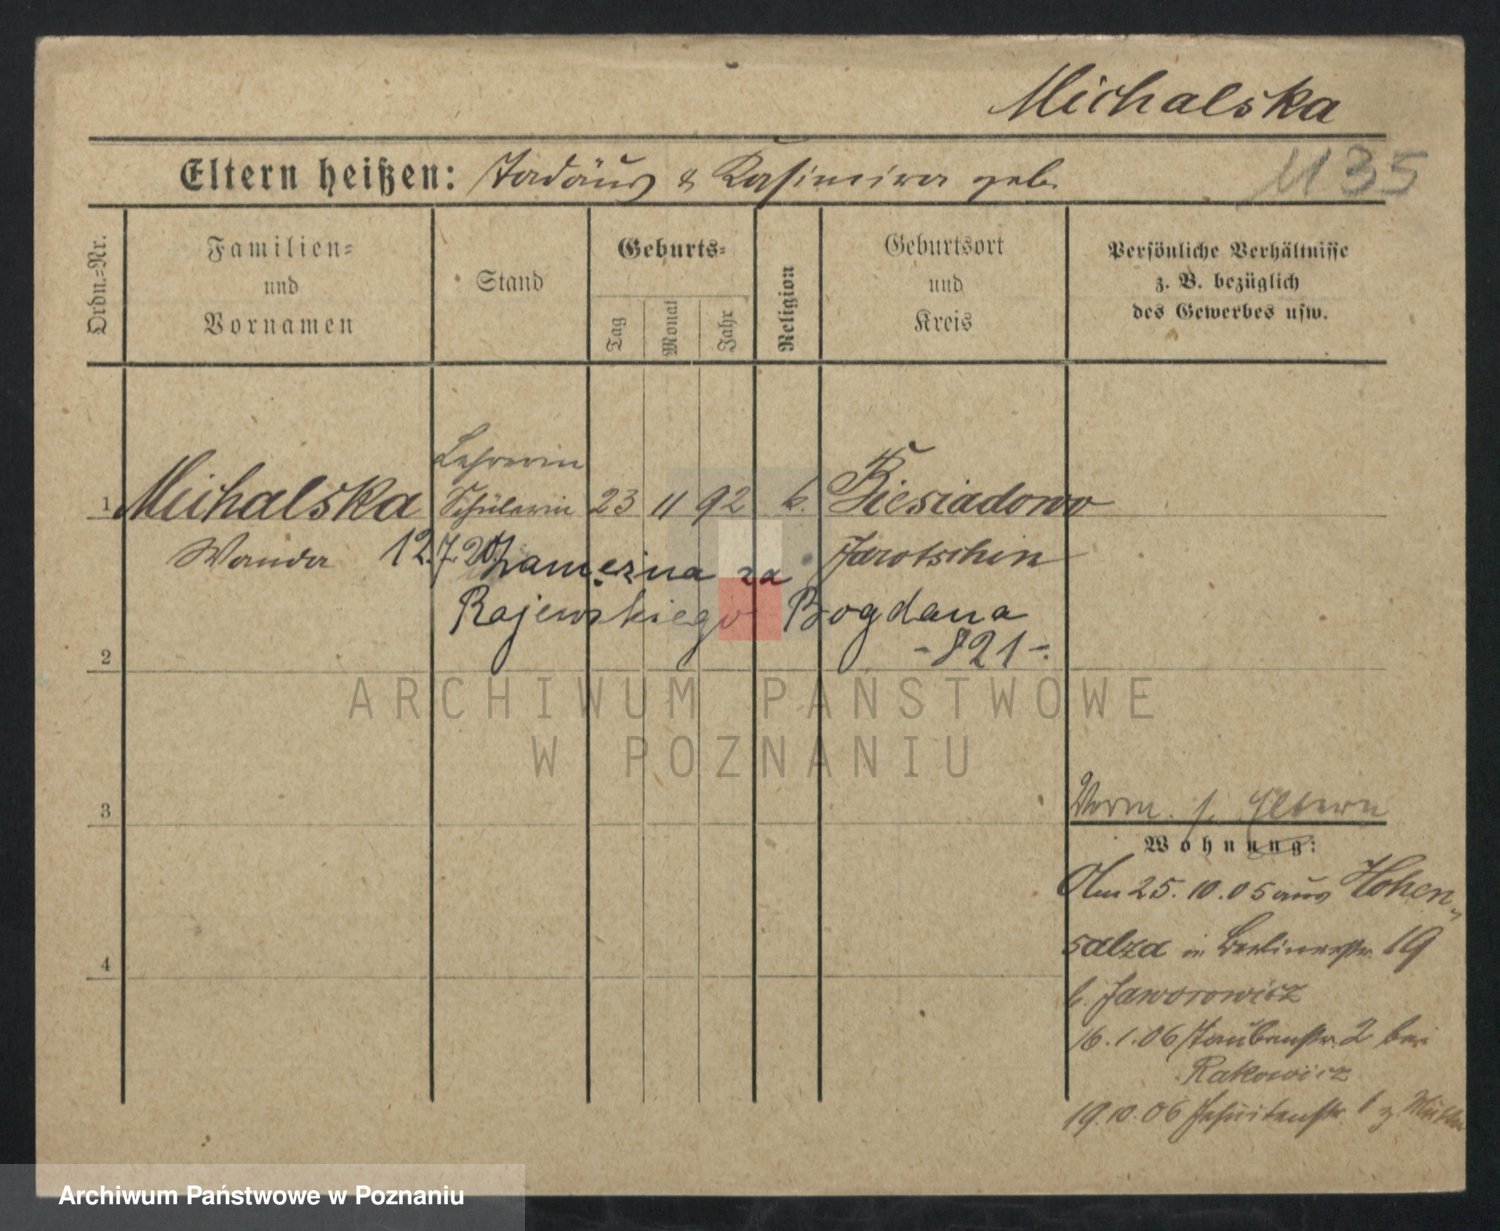 Michalska
Eltern heißen: Tadäus & Kasimira geb.
1135
Ordn.=Nr.
Familien=
und
Vornamen
Stand
Geburts=
Tag
Monat
Jahr
Religion
Geburtsort
und
Kreis
Persönliche Verhältnisse
z. B. bezüglich
des Gewerbes usw.
Lehrerin
1 Michalska Schülerin 23 11 92 k. Biesiadowo
Wanda 12.7.20 zamężna za Jarotschin
Rajewskiego Bogdana
-821-
2
ARCHIWUM PAŃSTWOWE
W POZNANIU
3
Vorm. s. Eltern
Wohnung:
Am 25.10.05 aus Hohen-
salza in Berlinerstr. 19
b. Jaworowicz
16.1.06 Taubenstr. 2 bei
Rakowicz
19.10.06 Jesuitenstr. 1 z
4
Archiwum Państwowe w Poznaniu